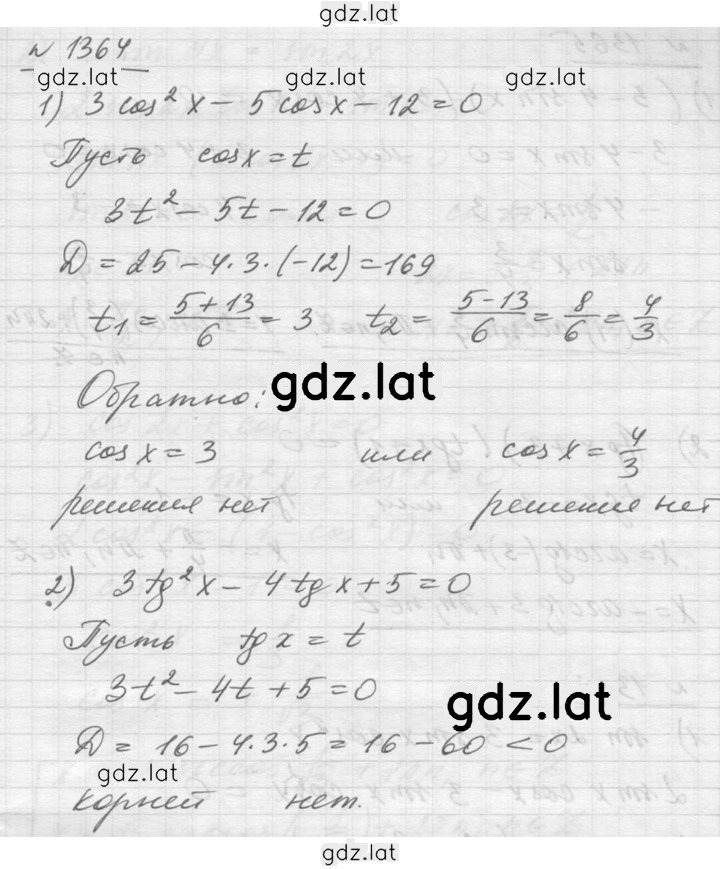 gdz.lat
№ 1364
gdz.lat gdz.lat gdz.lat
1) 3 cos² x - 5 cos x - 12 = 0
Пусть cos x = t
3t² - 5t - 12 = 0
D = 25 - 4·3·(-12) = 169
t₁ = (5+13)/6 = 3 t₂ = (5-13)/6 = 8/6 = 4/3
gdz.lat
Обратно:
cos x = 3 или cos x = 4/3
решения нет решения нет
2) 3 tg² x - 4 tg x + 5 = 0
Пусть tg x = t
3t² - 4t + 5 = 0
gdz.lat
D = 16 - 4·3·5 = 16 - 60 < 0
gdz.lat gdz.lat
корней нет.
gdz.lat